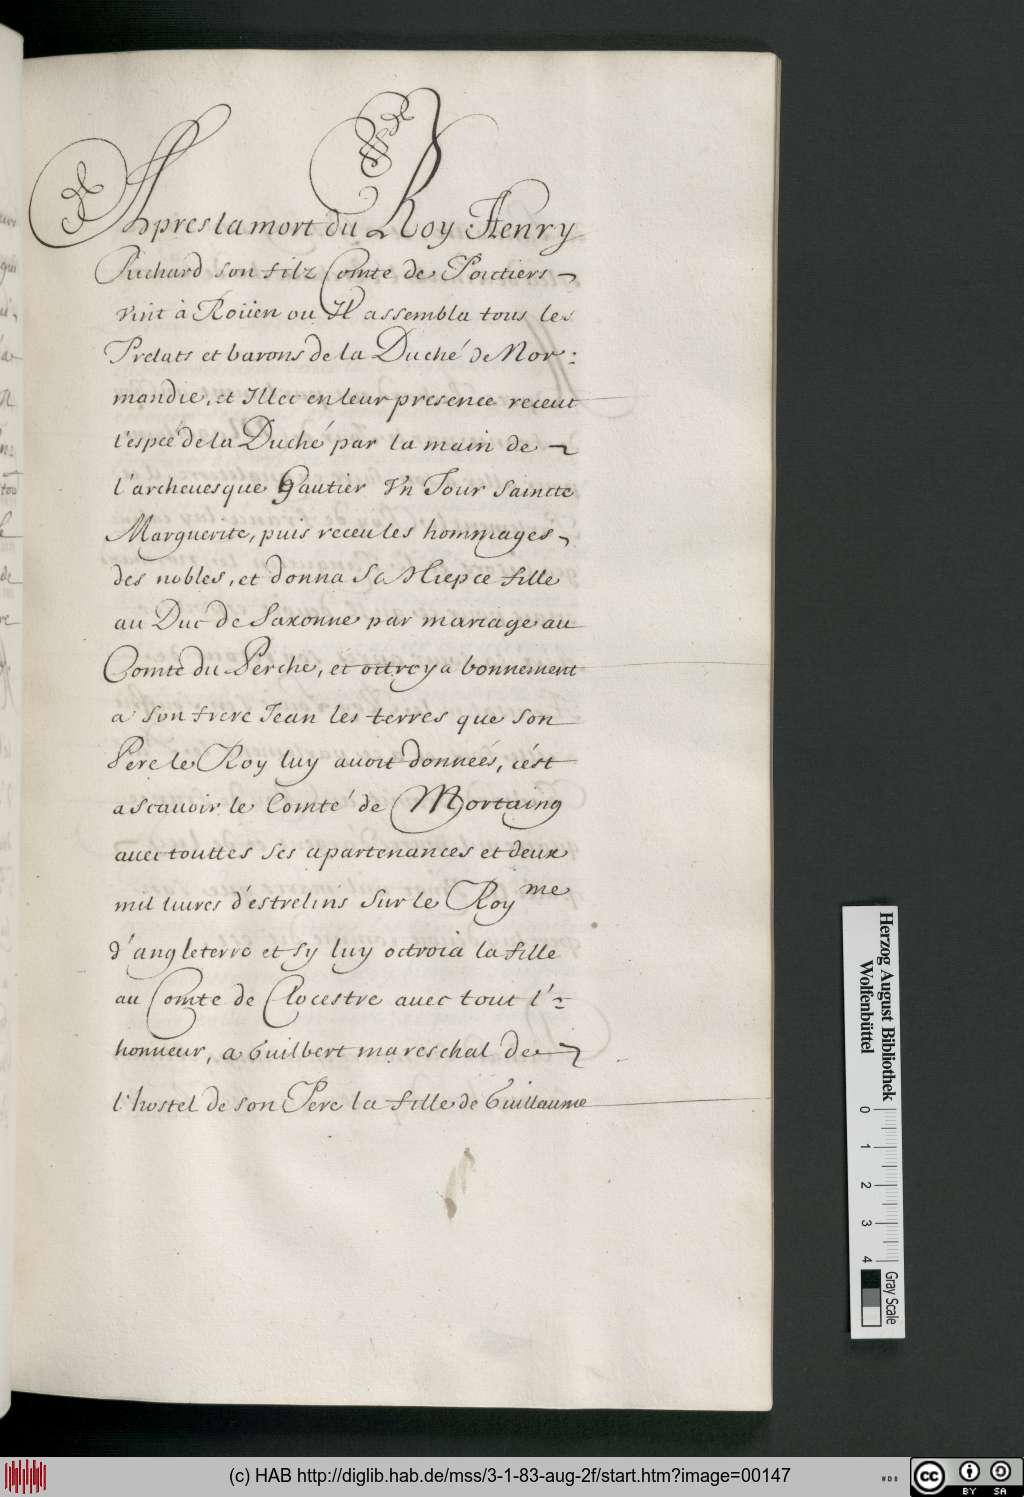 Apres la mort du Roy Henry
Richard son filz Comte de Poictiers
vint à Roüen ou Il assembla tous les
Prelats et barons de la Duché de Nor:
mandie, et Illec en leur presence receut
l'espeé de la Duché par la main de
l'archeuesque Gautier Vn Jour Saincte
Marguerite, puis receu les hommages
des nobles, et donna Sa Niepce fille
au Duc de Saxonne par mariage au
Comte du Perche, et ottroya bonnement
a son frere Jean les terres que son
Pere le Roy luy auoit donneés, c'ést
ascauoir le Comté de Mortaing
auec touttes ses apartenances et deux
mil liures d'éstrelins Sur le Roy^me
d'angleterre et sy luy octroia la fille
au Comte de Clocestre auec tout l'-
honneur, a Guilbert mareschal de
l'hostel de son Pere la fille de Guillaume
Herzog August Bibliothek
Wolfenbüttel
0 1 2 3 4
Gray Scale
(c) HAB http://diglib.hab.de/mss/3-1-83-aug-2f/start.htm?image=00147
cc BY SA